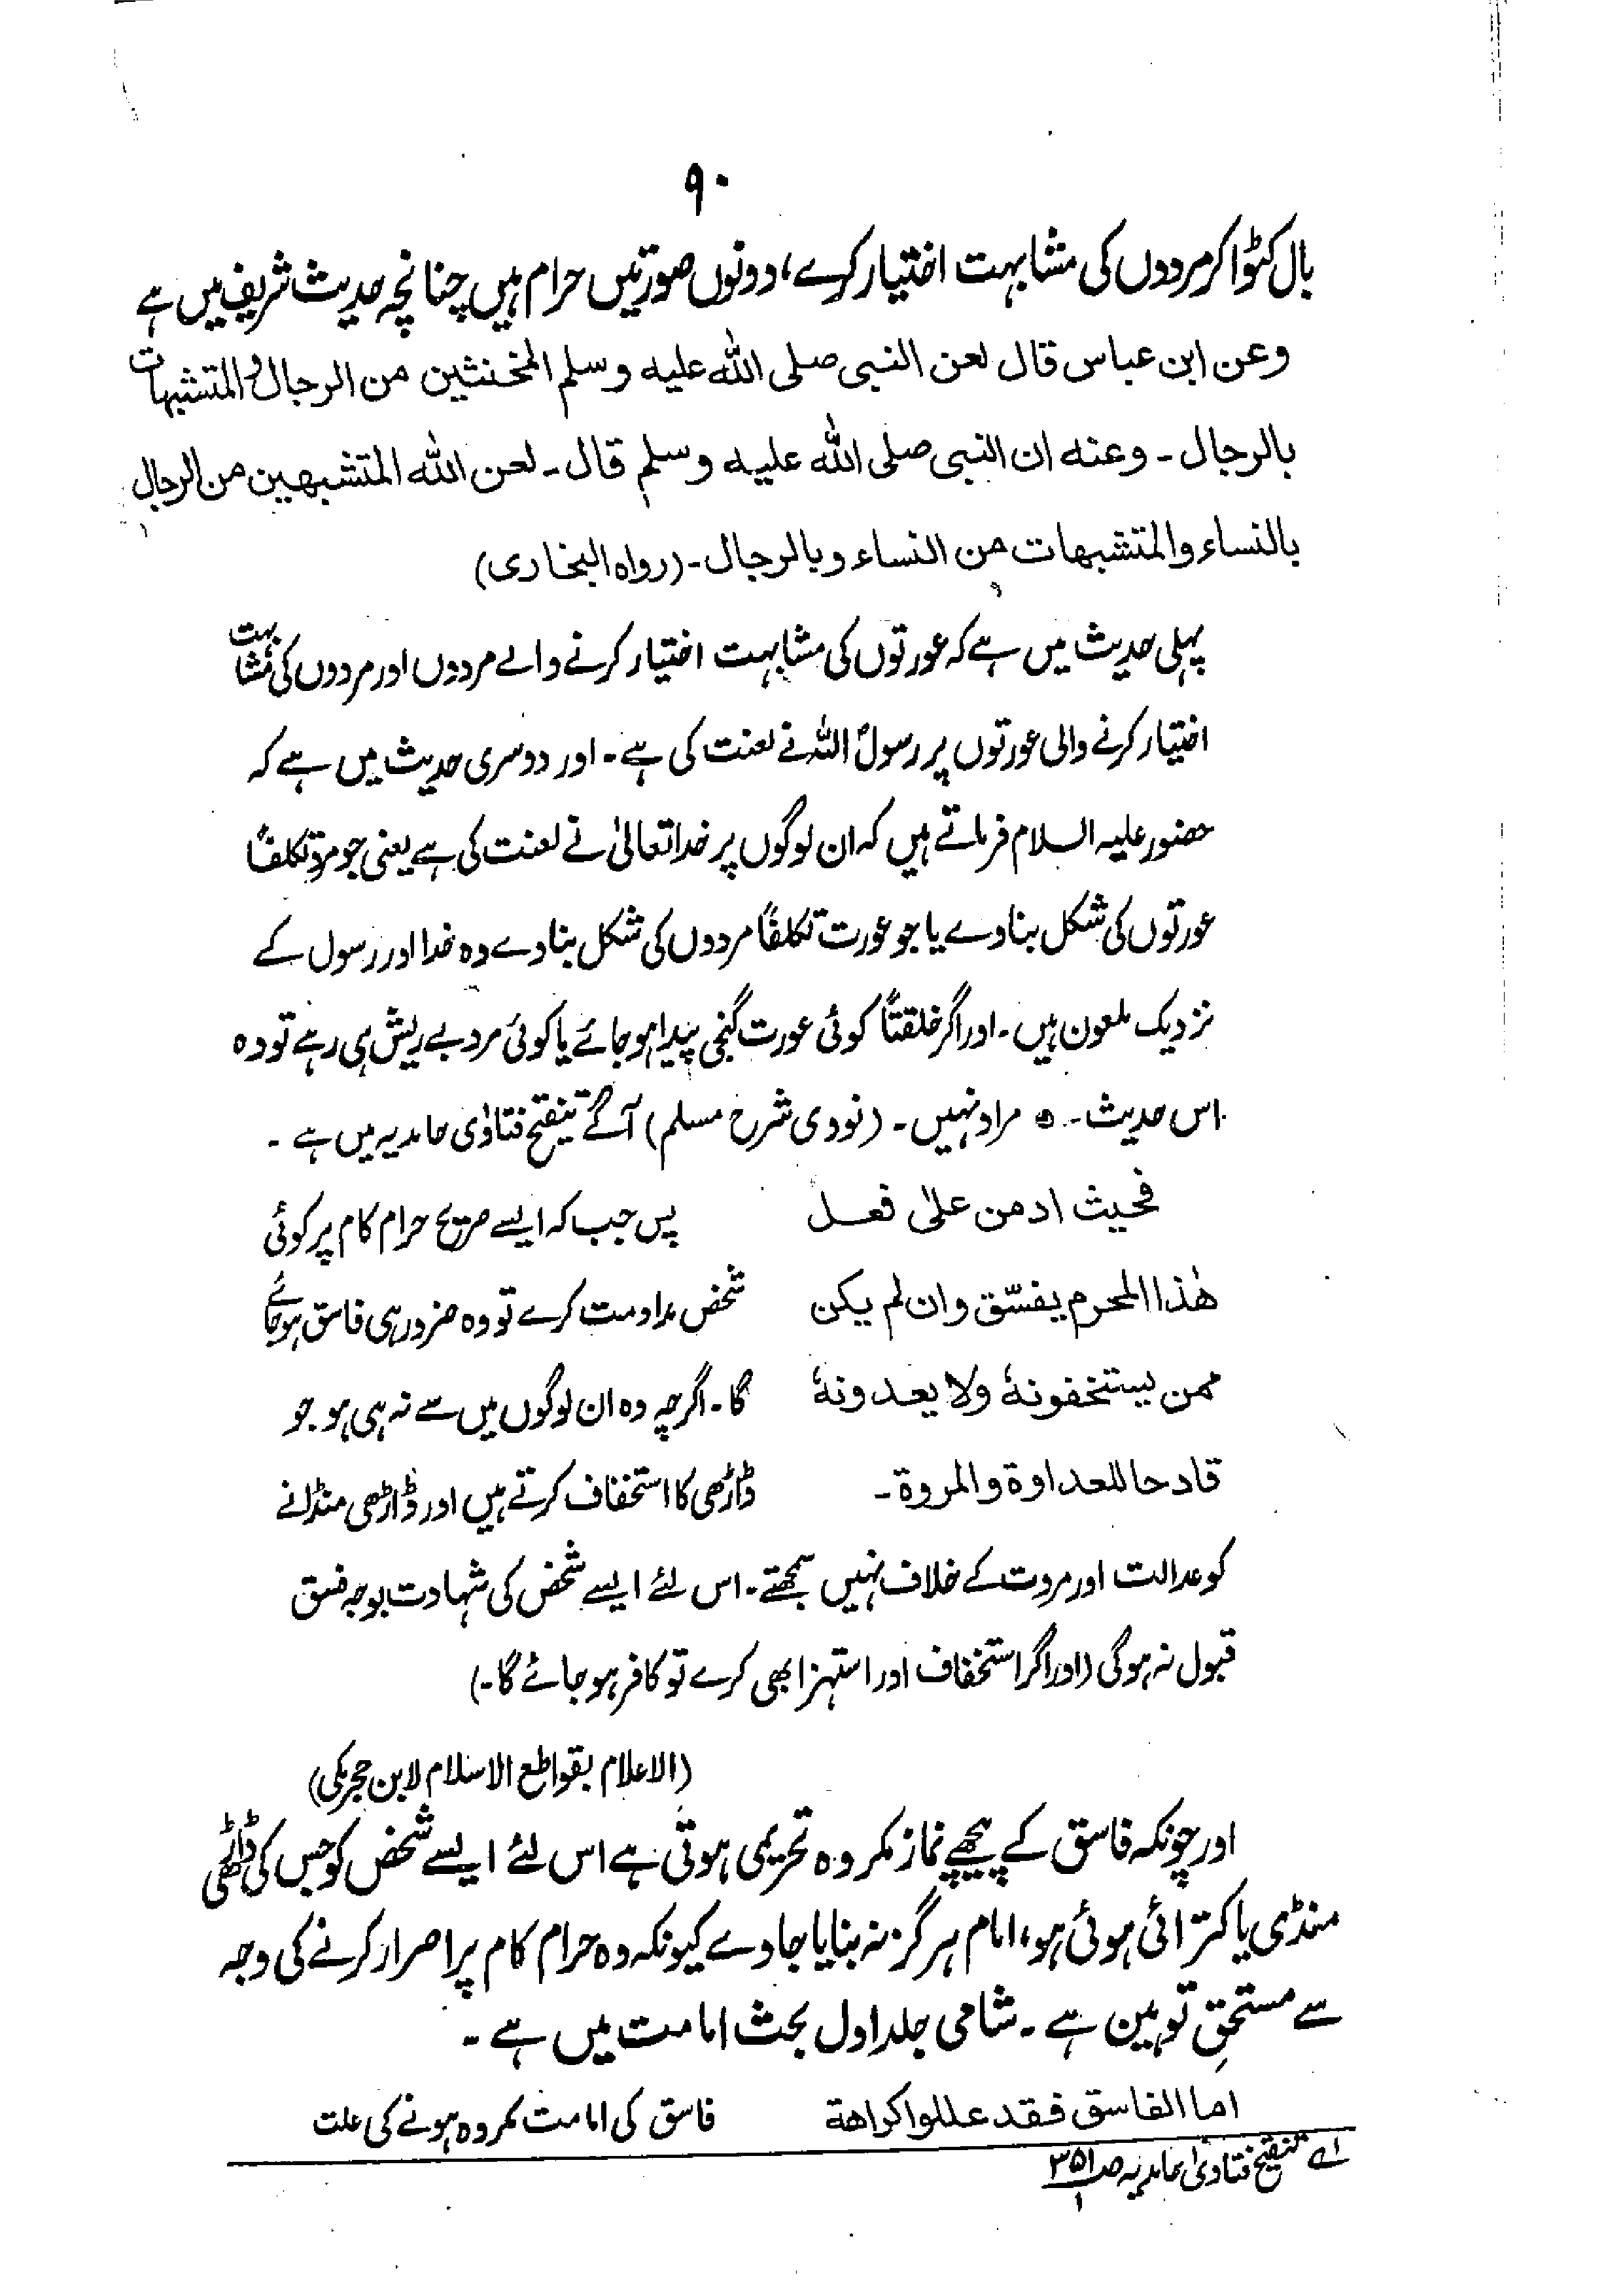 ۹۰
بال کٹوا کر مردوں کی مشابہت اختیار کرے، دونوں صورتیں حرام ہیں چنانچہ حدیث شریف میں ہے
وعن ابن عباس قال لعن النبی صلی اللہ علیہ وسلم المخنثین من الرجال والمتشبهات
بالرجال ۔ وعنہ ان النبی صلی اللہ علیہ وسلم قال ۔ لعن اللہ المتشبھین من الرجال
بالنساء والمتشبھات من النساء وبالرجال ۔ (رواہ البخاری)
پہلی حدیث میں ہے کہ عورتوں کی مشابہت اختیار کرنے والے مردوں اور مردوں کی مشابہت
اختیار کرنے والی عورتوں پر رسول اللہ نے لعنت کی ہے ۔ اور دوسری حدیث میں ہے کہ
حضور علیہ السلام فرماتے ہیں کہ ان لوگوں پر خدا تعالیٰ نے لعنت کی ہے یعنی جو مرد تکلفاً
عورتوں کی شکل بناوے یا جو عورت تکلفاً مردوں کی شکل بناوے وہ خدا اور رسول کے
نزدیک ملعون ہیں ۔ اور اگر خلقتاً کوئی عورت گنجی پیدا ہو جائے یا کوئی مرد بے ریش ہی رہے تو وہ
اس حدیث ۔ مراد نہیں ۔ (نودی شرح مسلم) آگے تنقیح فتاوٰی حامدیہ میں ہے ۔
فحیث ادمن علیٰ فعل پس جب کہ ایسے صریح حرام کام پر کوئی
ھٰذا المحرم یفسّق وان لم یکن شخص مداومت کرے تو وہ ضرور ہی فاسق ہو جائے
ممن یستخفونہٗ ولا یعدونہٗ گا ۔ اگرچہ وہ ان لوگوں میں سے نہ ہی ہو جو
قادحا للعداوۃ والمروۃ ۔ ڈاڑھی کا استخفاف کرتے ہیں اور ڈاڑھی منڈانے
کو عدالت اور مروت کے خلاف نہیں سمجھتے ۔ اس لئے ایسے شخص کی شہادت بوجہ فسق
قبول نہ ہوگی (اور اگر استخفاف اور استہزا بھی کرے تو کافر ہو جائے گا ۔)
(الاعلام بقواطع الاسلام لابن حجر مکی)
اور چونکہ فاسق کے پیچھے نماز مکروہ تحریمی ہوتی ہے اس لئے ایسے شخص کو جس کی ڈاڑھی
منڈی یا کترائی ہوئی ہو، امام ہرگز نہ بنایا جاوے کیونکہ وہ حرام کام پر اصرار کرنے کی وجہ
سے مستحقِ توہین ہے ۔ شامی جلد اول بحث امامت میں ہے ۔
اما الفاسق فقد عللوا کراھة فاسق کی امامت مکروہ ہونے کی علت
لے تنقیح فتاویٰ حامدیہ ص ۳۵۱/۱